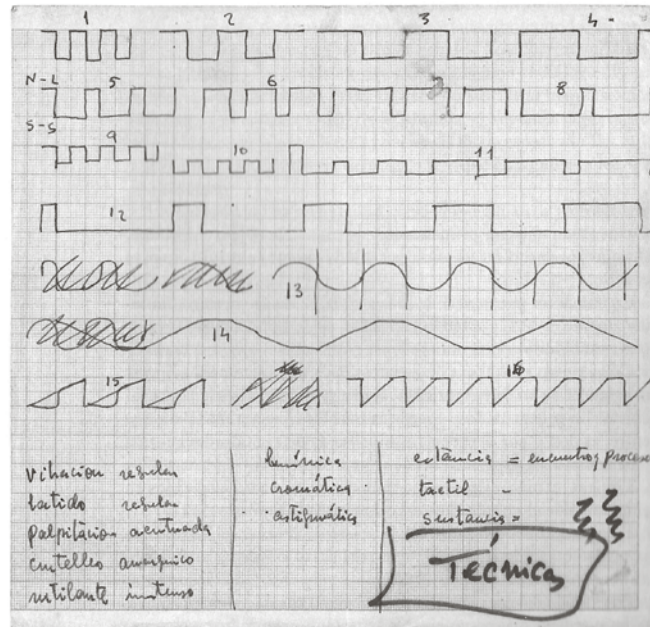 1 2 3 4 -
N-L 5 6 7 8
S-S
9 10 11
12
13
14
15 16
vibración regular
latido regular
palpitación acentuada
centelleo anárquico
rutilante intenso
lumínica
cromática
astigmática
estancia = encuentro y proceso
tactil -
sustancia =
Técnicas